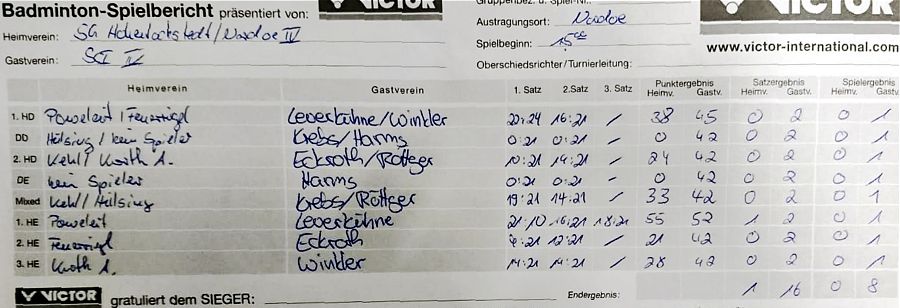 Badminton-Spielbericht präsentiert von: VICTOR
Heimverein: SG Hohenlockstedt/Nordoe IV
Austragungsort: Nordoe
Gastverein: SCI IV
Spielbeginn: 15⁰⁰
www.victor-international.com
Oberschiedsrichter/Turnierleitung:
Heimverein Gastverein 1. Satz 2. Satz 3. Satz Punktergebnis Heimv. Gastv. Satzergebnis Heimv. Gastv. Spielergebnis Heimv. Gastv.
1. HD Poweleit / Feuerriegel Leverkühne/Winkler 22:24 16:21 / 38 45 0 2 0 1
DD Hülsing / kein Spieler Krebs/Harms 0:21 0:21 / 0 42 0 2 0 1
2. HD Kehl / Kroth A. Eckroth/Röttger 10:21 14:21 / 24 42 0 2 0 1
DE kein Spieler Harms 0:21 0:21 – 0 42 0 2 0 1
Mixed Kehl / Hülsing Krebs/Röttger 19:21 14:21 / 33 42 0 2 0 1
1. HE Poweleit Leverkühne 21:10 16:21 18:21 55 52 1 2 0 1
2. HE Feuerriegel Eckroth 9:21 12:21 / 21 42 0 2 0 1
3. HE Kroth A. Winkler 14:21 14:21 / 28 42 0 2 0 1
VICTOR gratuliert dem SIEGER: Endergebnis: 1 16 0 8